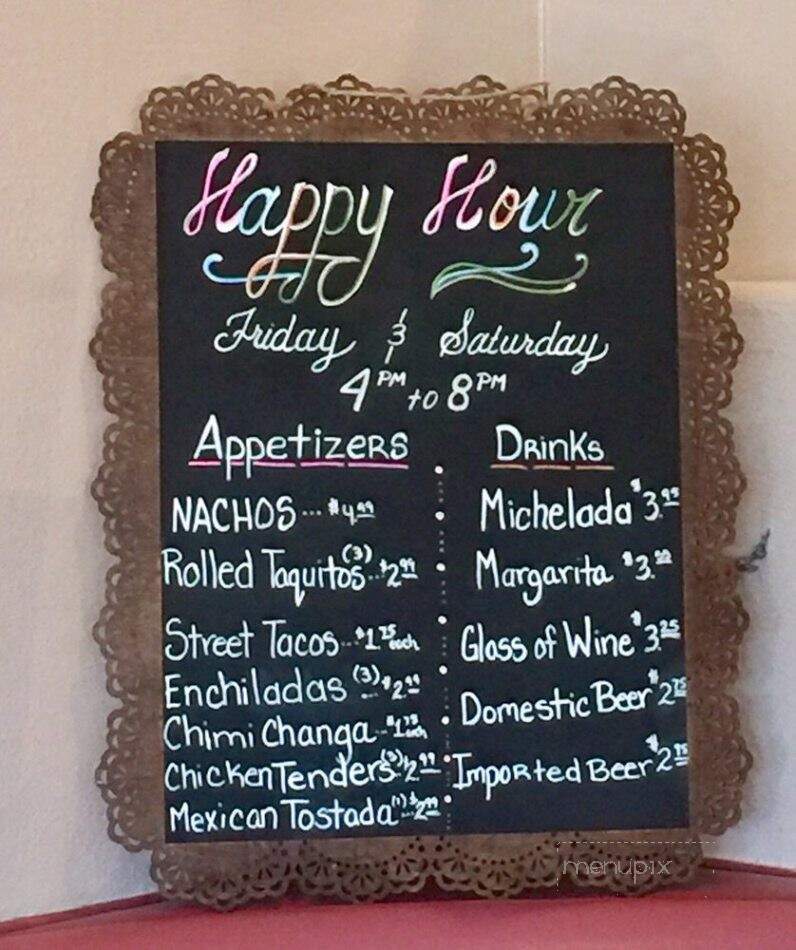 Happy Hour
Friday & Saturday
4PM to 8PM
Appetizers
NACHOS... $4.99
Rolled Taquitos (3)..$2.99
Street Tacos..$1.75 each
Enchiladas (3)..$2.99
Chimi Changa..$1.75 each
Chicken Tenders (3)..$2.99
Mexican Tostada (1)..$2.99
Drinks
Michelada $3.95
Margarita $3.
Glass of Wine $3.25
Domestic Beer $2.75
Imported Beer $2.95
menupix